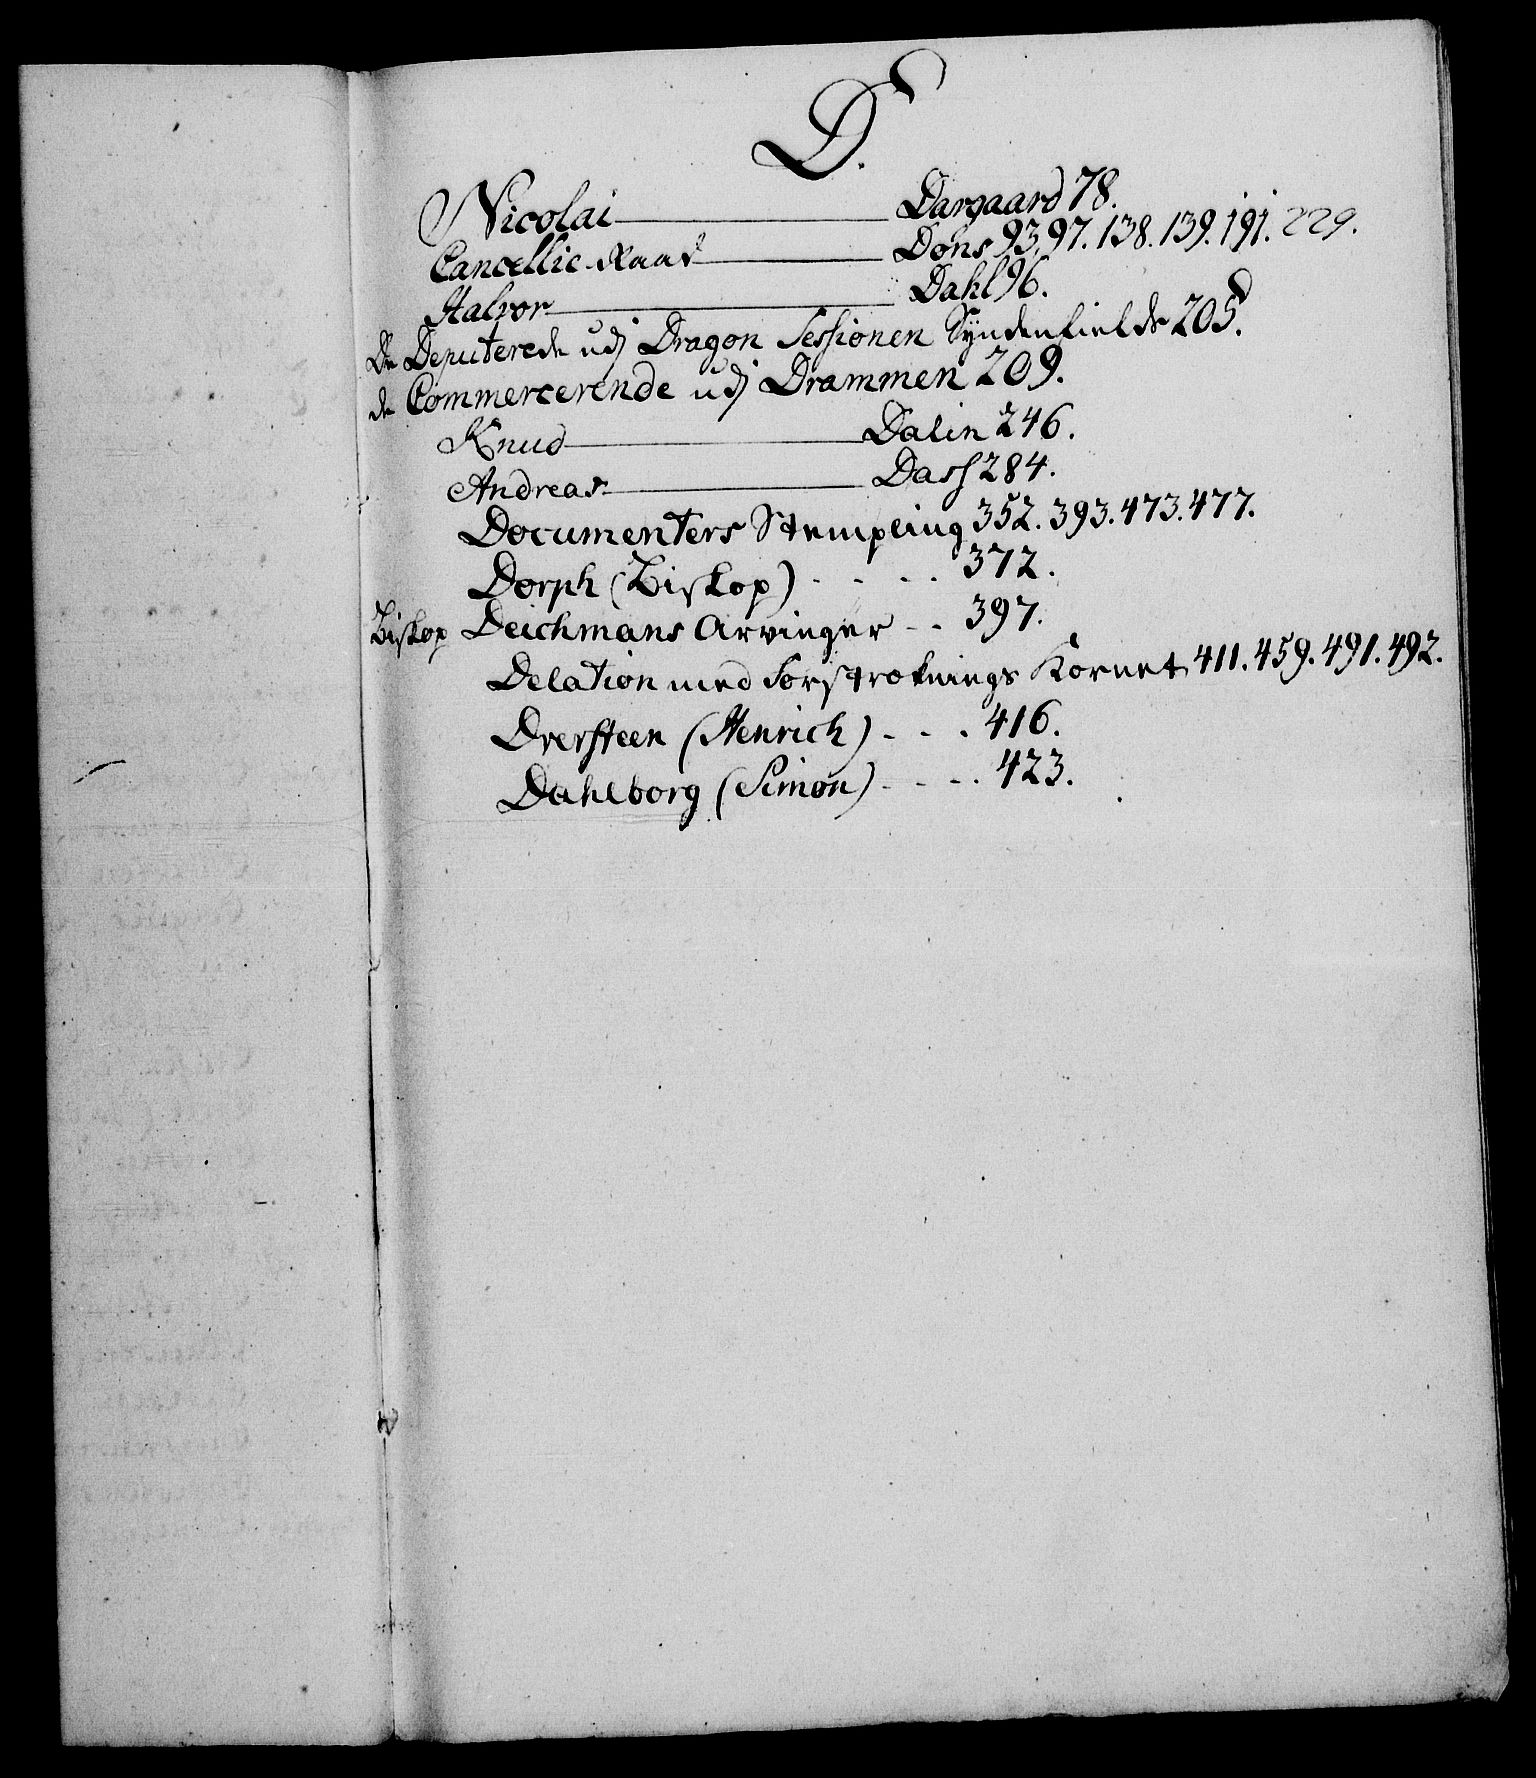 D.
Nicolai Dargaard 78.
Cancellie-Raad Dons 93. 97. 138. 139. 191. 229.
Halvor Dahl 96.
De Deputerede udj Dragon Sessionen Syndenfields 205.
de Commercerende udj Drammen 209.
Knud Dalin 246.
Andreas Dass 284.
Documenters Stempling 352. 393. 473. 477.
Dorph (Biskop) - - - - 372.
Biskop Deichmans Arvinger - - 397.
Delation med Forstræknings Kornet 411. 459. 491. 492.
Dversteen (Henrich) - - - 416.
Dahlborg (Simon) - - - - 423.